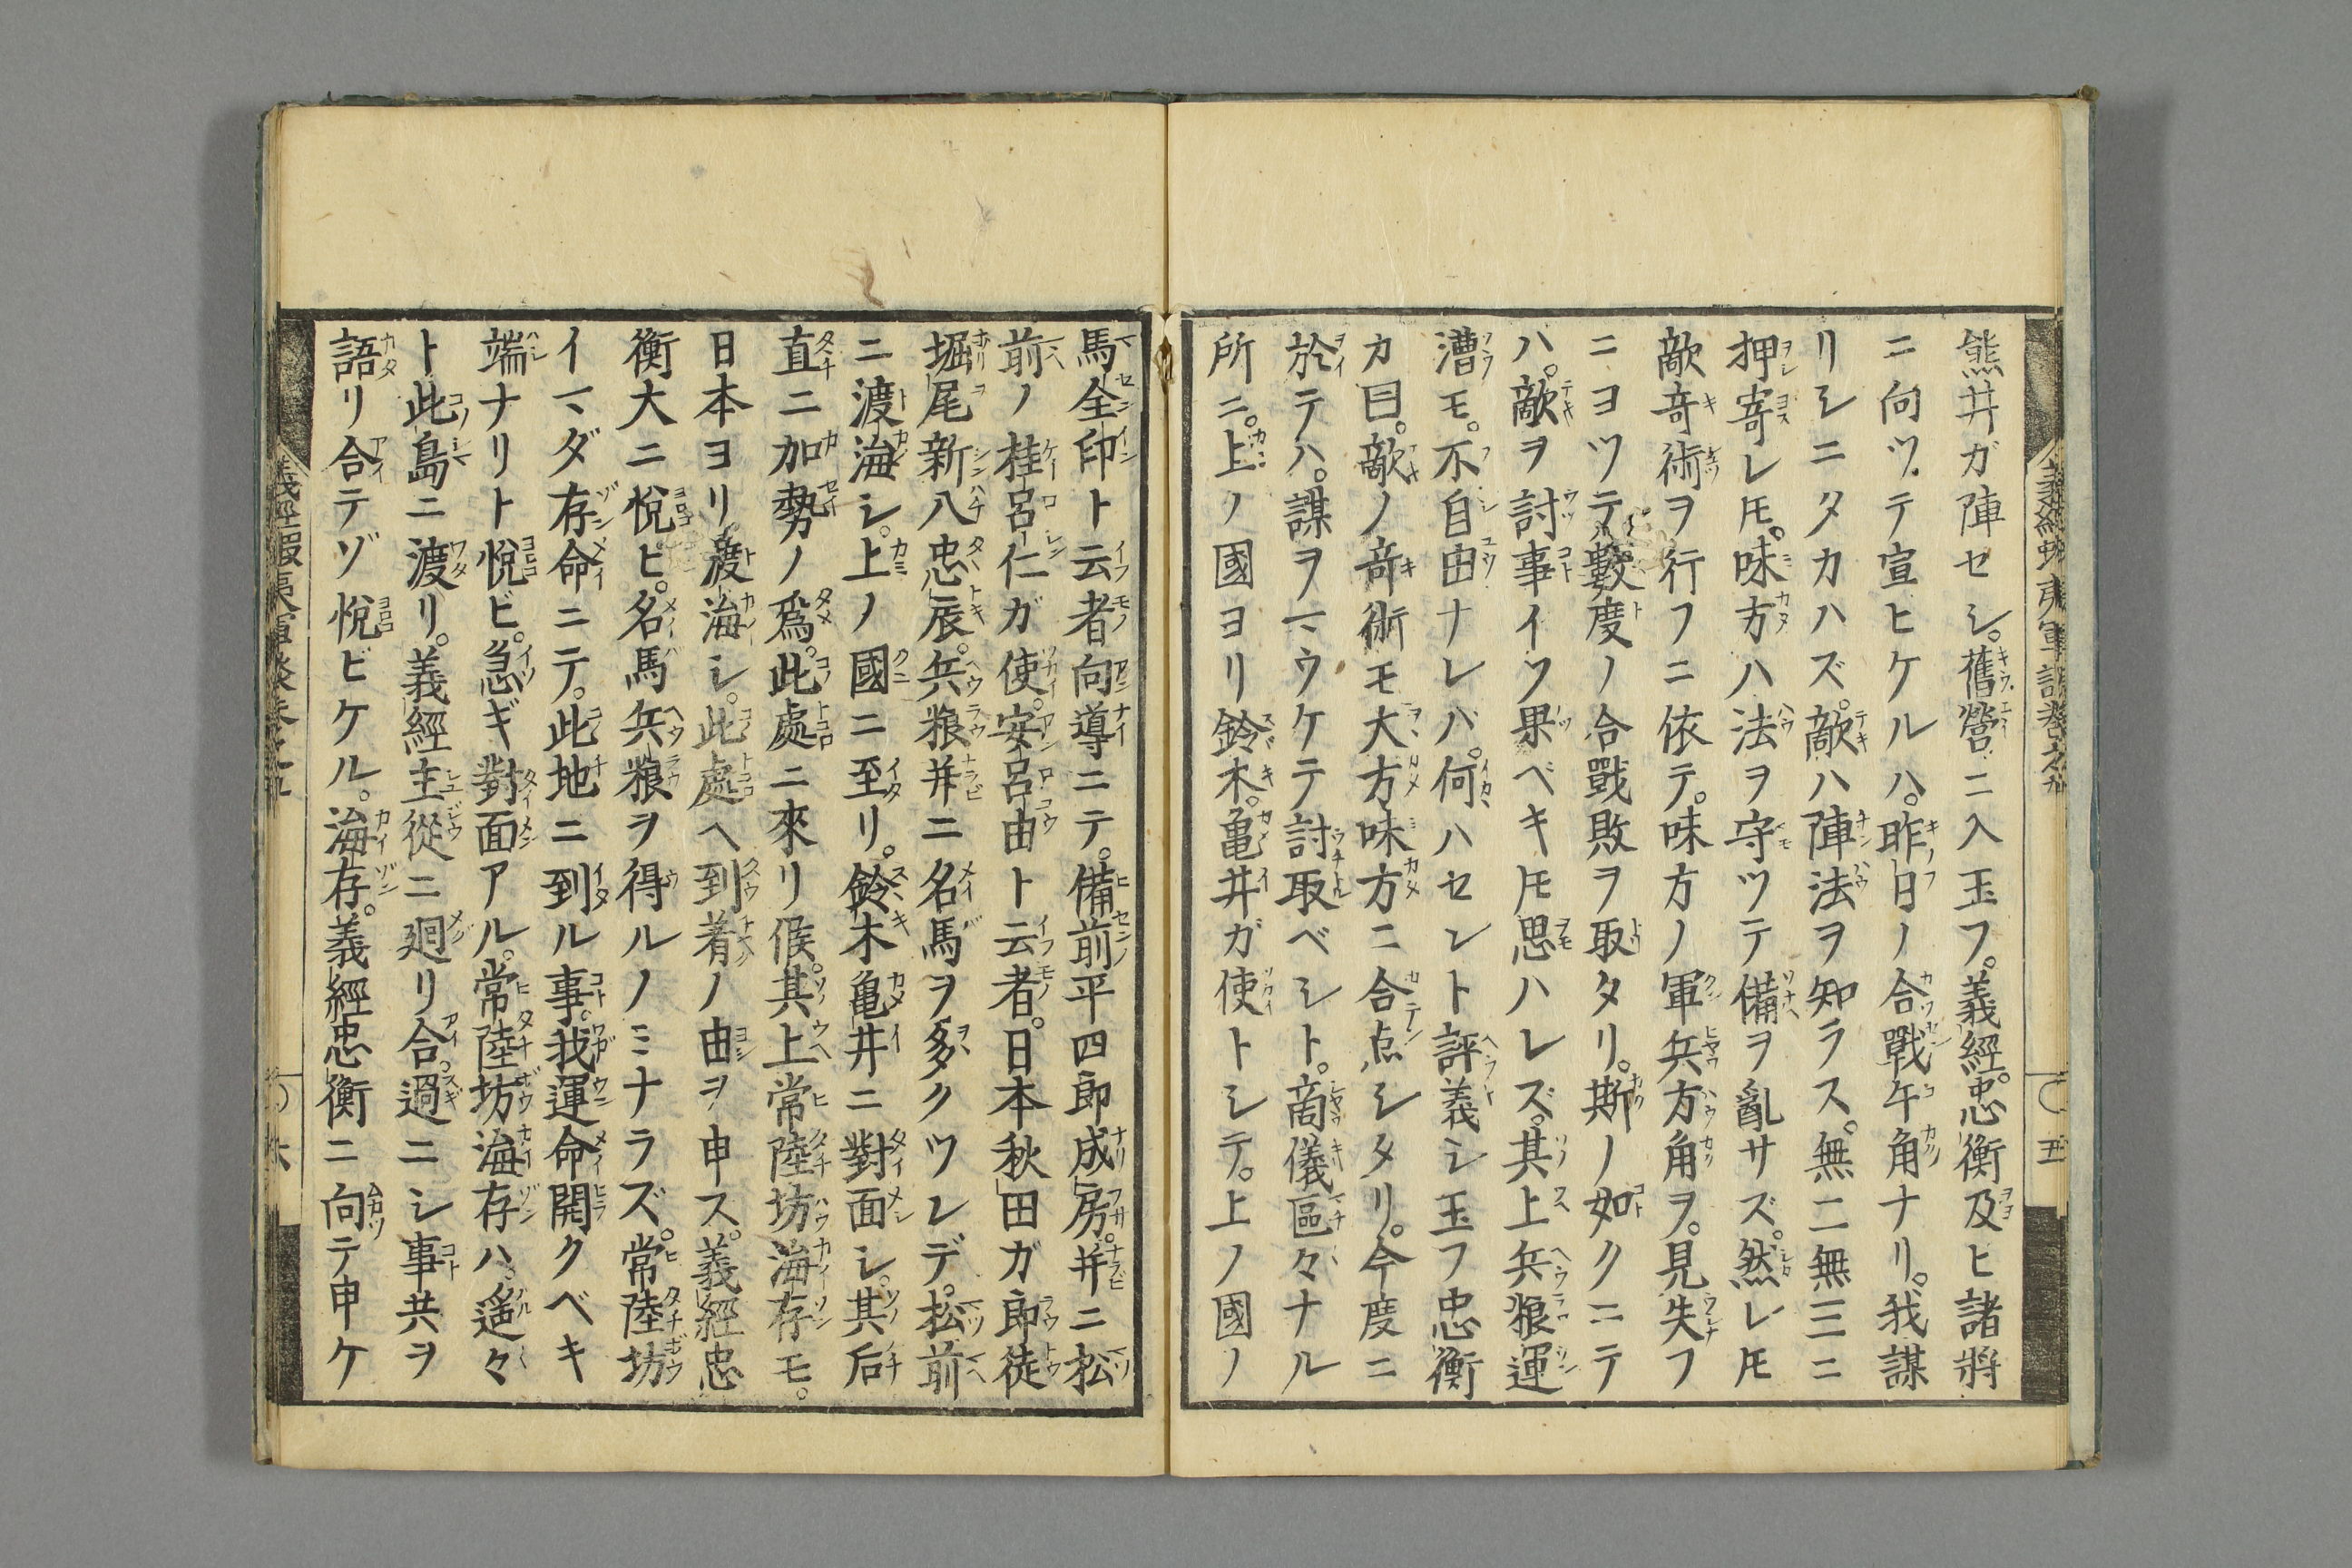 熊井ガ陣セシ。舊營ニ入玉フ。義經。忠衡及ヒ諸將
ニ向ツテ宣ヒケルハ。昨日ノ合戰午角ナリ。我謀
リシニタカハズ。敵ハ陣法ヲ知ラス。無二無三ニ
押寄レ𪜈。味方ハ法ヲ守ツテ備ヲ亂サズ。然レ𪜈
敵竒術ヲ行フニ依テ。味方ノ軍兵方角ヲ。見失フ
ニヨツテ數度ノ合戰敗ヲ取タリ。斯ノ如クニテ
ハ。敵ヲ討事イツ果ベキ𪜈思ハレズ。其上兵粮運
漕モ。不自由ナレバ。何ハセント評義シ玉フ忠衡
カ曰。敵ノ竒術モ大方味方ニ合点シタリ。今度ニ
於テハ。謀ヲマウケテ討取ベシト。商儀區々ナル
所ニ。上ノ國ヨリ鈴木。亀井ガ使トシテ。上ノ國ノ
馬全印ト云者向導ニテ。備前平四郎成房。并ニ松
前ノ桂呂仁ガ使。安呂由ト云者。日本秋田ガ郎徒
堀尾新八忠辰。兵粮并ニ名馬ヲ多クツレデ。松前
ニ渡海シ。上ノ國ニ至リ。鈴木亀井ニ對面シ。其后
直ニ加勢ノ爲。此處ニ來リ候。其上常陸坊海存モ。
日本ヨリ渡海シ。此處ヘ到着ノ由ヲ申ス。義經忠
衡大ニ悅ビ。名馬兵粮ヲ得ルノミナラズ。常陸坊
イマダ存命ニテ。此地ニ到ル事。我運命開クベキ
端ナリト悅ビ。急ギ對面アル。常陸坊海存ハ。遥々
ト此島ニ渡リ。義經主從ニ廻リ合。過ニシ事共ヲ
語リ合テゾ悅ビケル。海存。義經忠衡ニ向テ申ケ